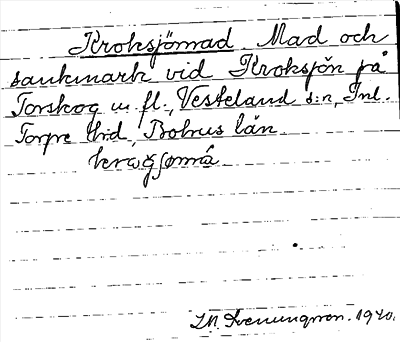 Kroksjömad. Mad och
sankmark vid Kroksjön på
Torskog m. fl., Västerland s:n, Inl.
Torpe hd, Bohus län.
J.N. Svenungsson. 1940.